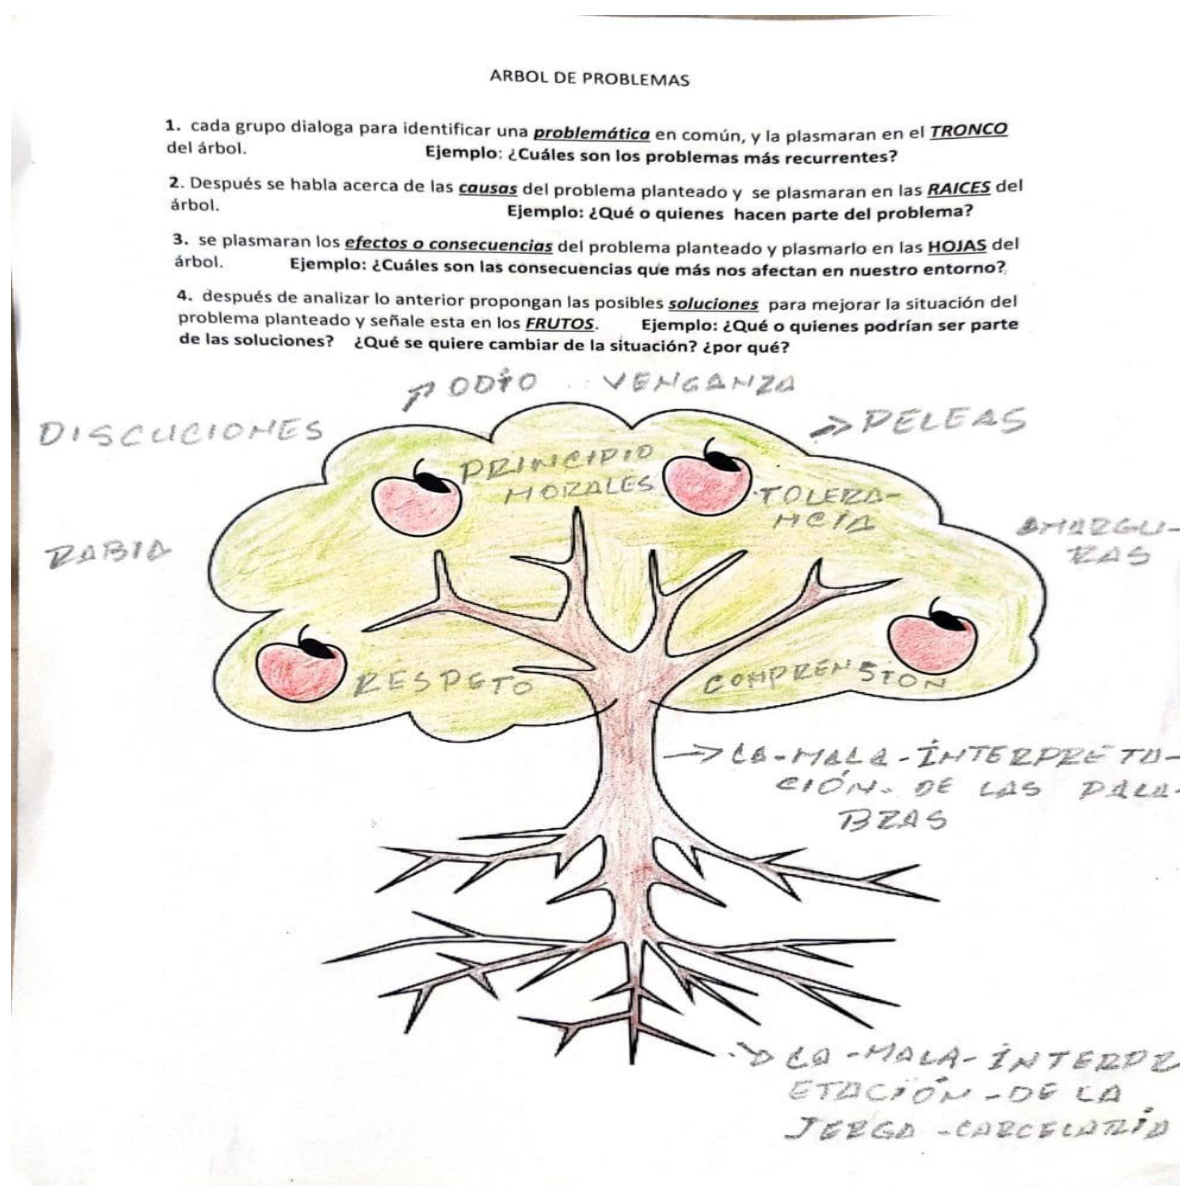 ARBOL DE PROBLEMAS
1. cada grupo dialoga para identificar una problemática en común, y la plasmaran en el TRONCO
del árbol. Ejemplo: ¿Cuáles son los problemas más recurrentes?
2. Después se habla acerca de las causas del problema planteado y se plasmaran en las RAICES del
árbol. Ejemplo: ¿Qué o quienes hacen parte del problema?
3. se plasmaran los efectos o consecuencias del problema planteado y plasmarlo en las HOJAS del
árbol. Ejemplo: ¿Cuáles son las consecuencias que más nos afectan en nuestro entorno?
4. después de analizar lo anterior propongan las posibles soluciones para mejorar la situación del
problema planteado y señale esta en los FRUTOS. Ejemplo: ¿Qué o quienes podrían ser parte
de las soluciones? ¿Qué se quiere cambiar de la situación? ¿por qué?
ODIO VENGANZA
DISCUCIONES
PELEAS
PRINCIPIO
MORALES
TOLERA-
NCIA
RABIA
AMARGU-
RAS
RESPETO
COMPRENSION
LA-MALA-INTERPRETA-
CIÓN. DE LAS PALA-
BRAS
LA-MALA-INTERPR
ETACIÓN-DE LA
JERGA-CARCELARIA